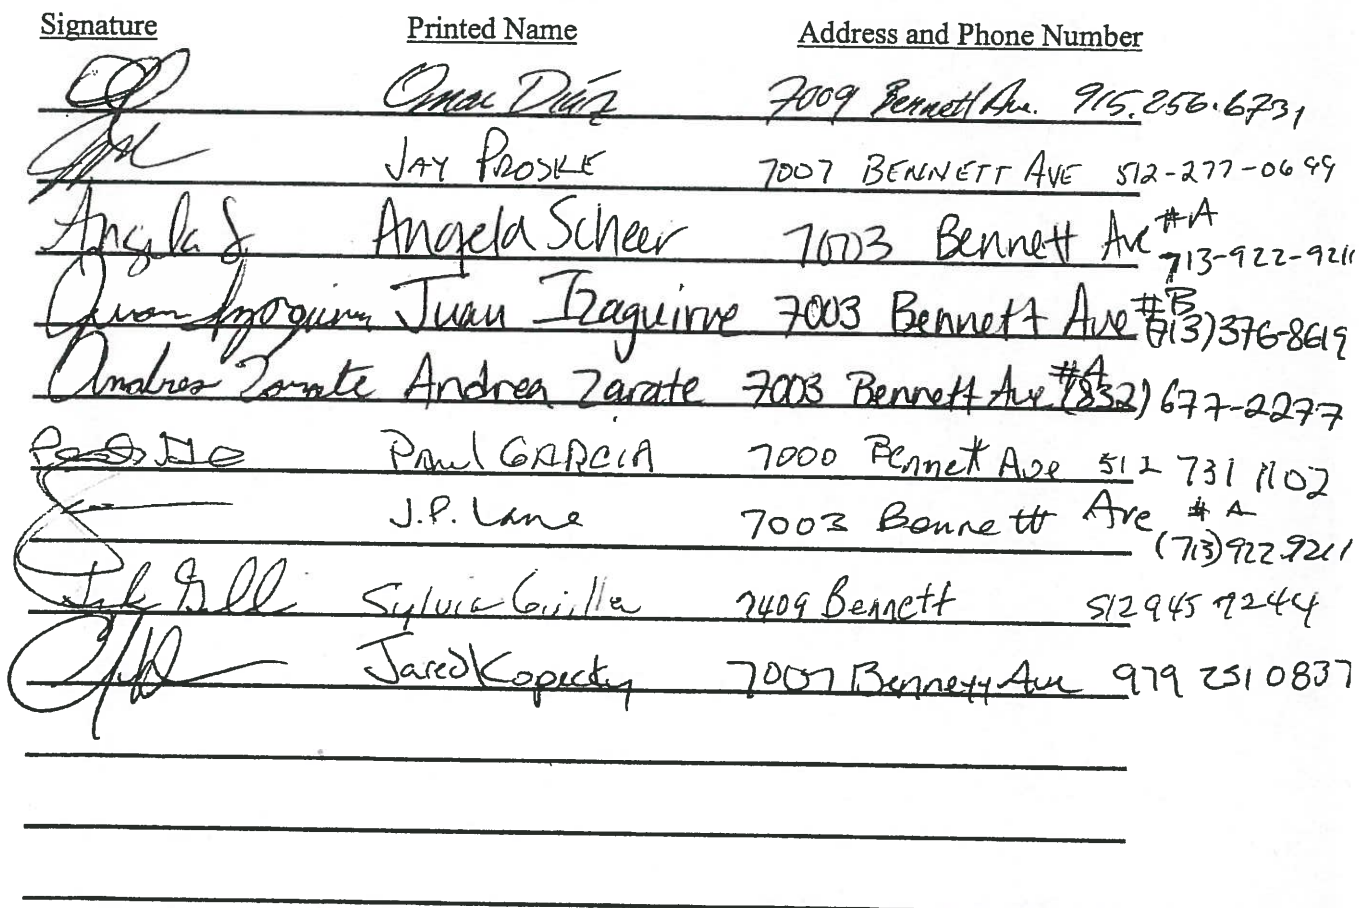 Signature Printed Name Address and Phone Number
Omar Díaz 7009 Bennett Ave. 915.256.6731
JAY PROSKE 7007 BENNETT AVE 512-277-0699
Angela S Angela Scheer 7003 Bennett Ave #A 713-922-9211
Juan Izaguirre Juan Izaguirre 7003 Bennett Ave #B (713) 376-8619
Andrea Zarate Andrea Zarate 7003 Bennett Ave #A (832) 677-2277
Paul GARCIA 7000 Bennett Ave 512 731 1102
J.P. Lane 7003 Bennett Ave #A (713) 922-9211
Sylvia 7409 Bennett 512 945 7244
Jared Kopecky 7007 Bennett Ave 979 251 0837